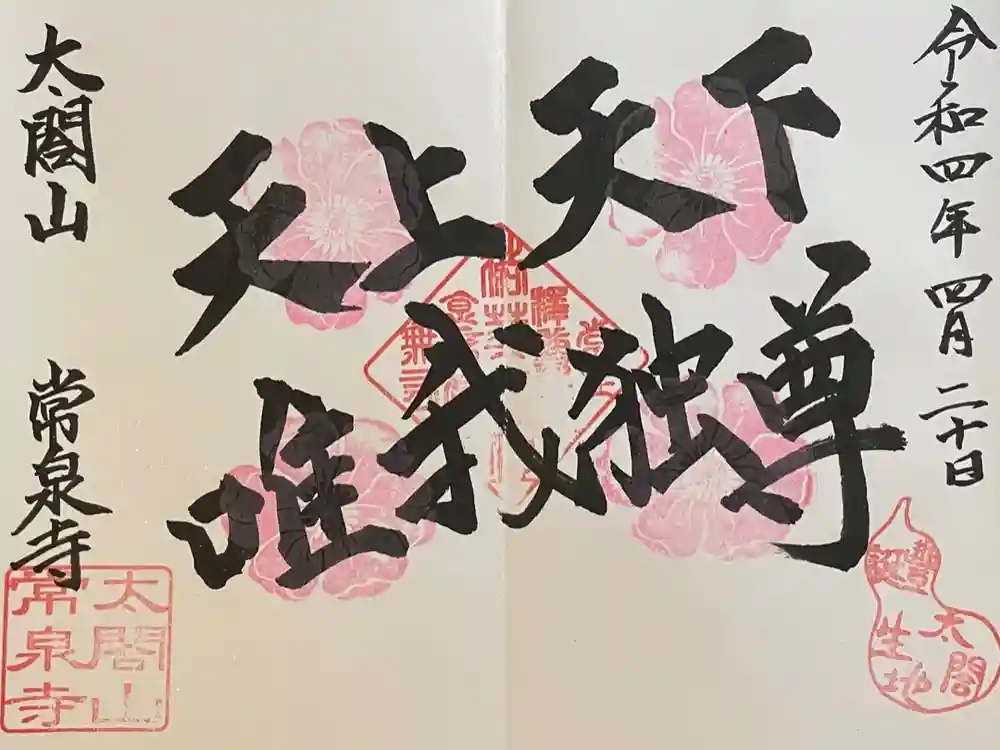 令和四年四月二十日
天上天下
唯我独尊
太閤山 常泉寺
太閤山
常泉寺
豐太閤
誕生地